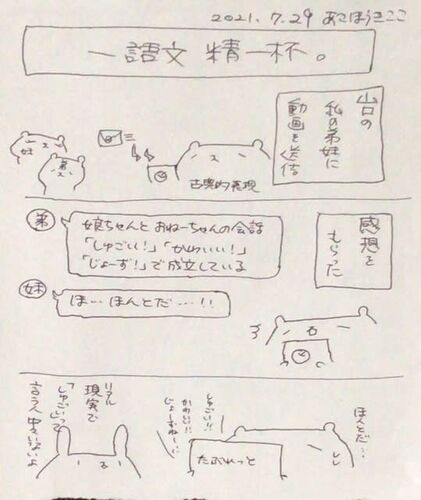 2021.7.29 あさほうきここ
一語文 精一杯。
山口の
私の弟妹に
動画を送信
妹
弟
古典的表現
感想を
もらった
弟
娘ちゃんと おねーちゃんの会話
「しゅごい!」「かわいい!」
「じょーず!」で成立している
妹
ほ…ほんとだ…!!
ほんとだ…
しゅごい!!
かわいい!!
じょーずねー!!
たぶれっと
リアル
現実で
「しゅごい」って
言う人中々いないよ